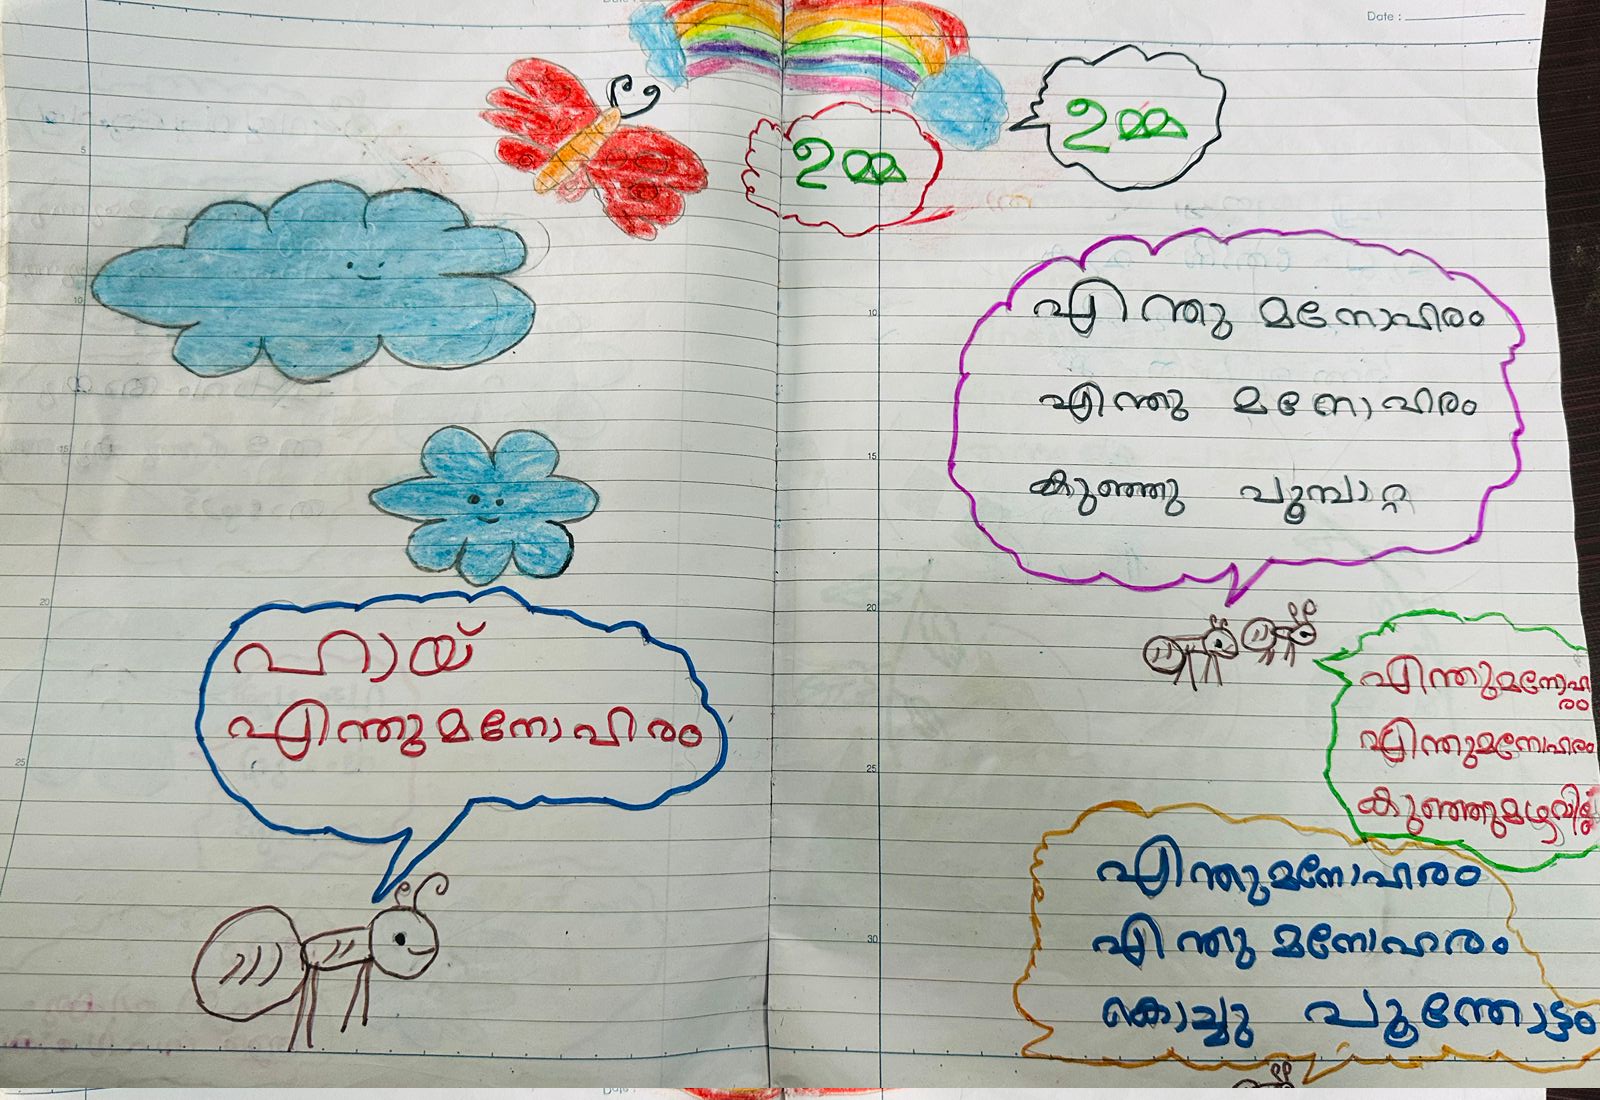 Date :
ഉമ്മ
ഉമ്മ
ഹായ്
എന്തു മനോഹരം
എന്തു മനോഹരം
എന്തു മനോഹരം
കുഞ്ഞു പൂമ്പാറ്റ
എന്തുമനോഹ
രം
എന്തുമനോഹരം
കുഞ്ഞുമഴവില്ല്
എന്തുമനോഹരം
എന്തു മനോഹരം
കൊച്ചു പൂന്തോട്ടം